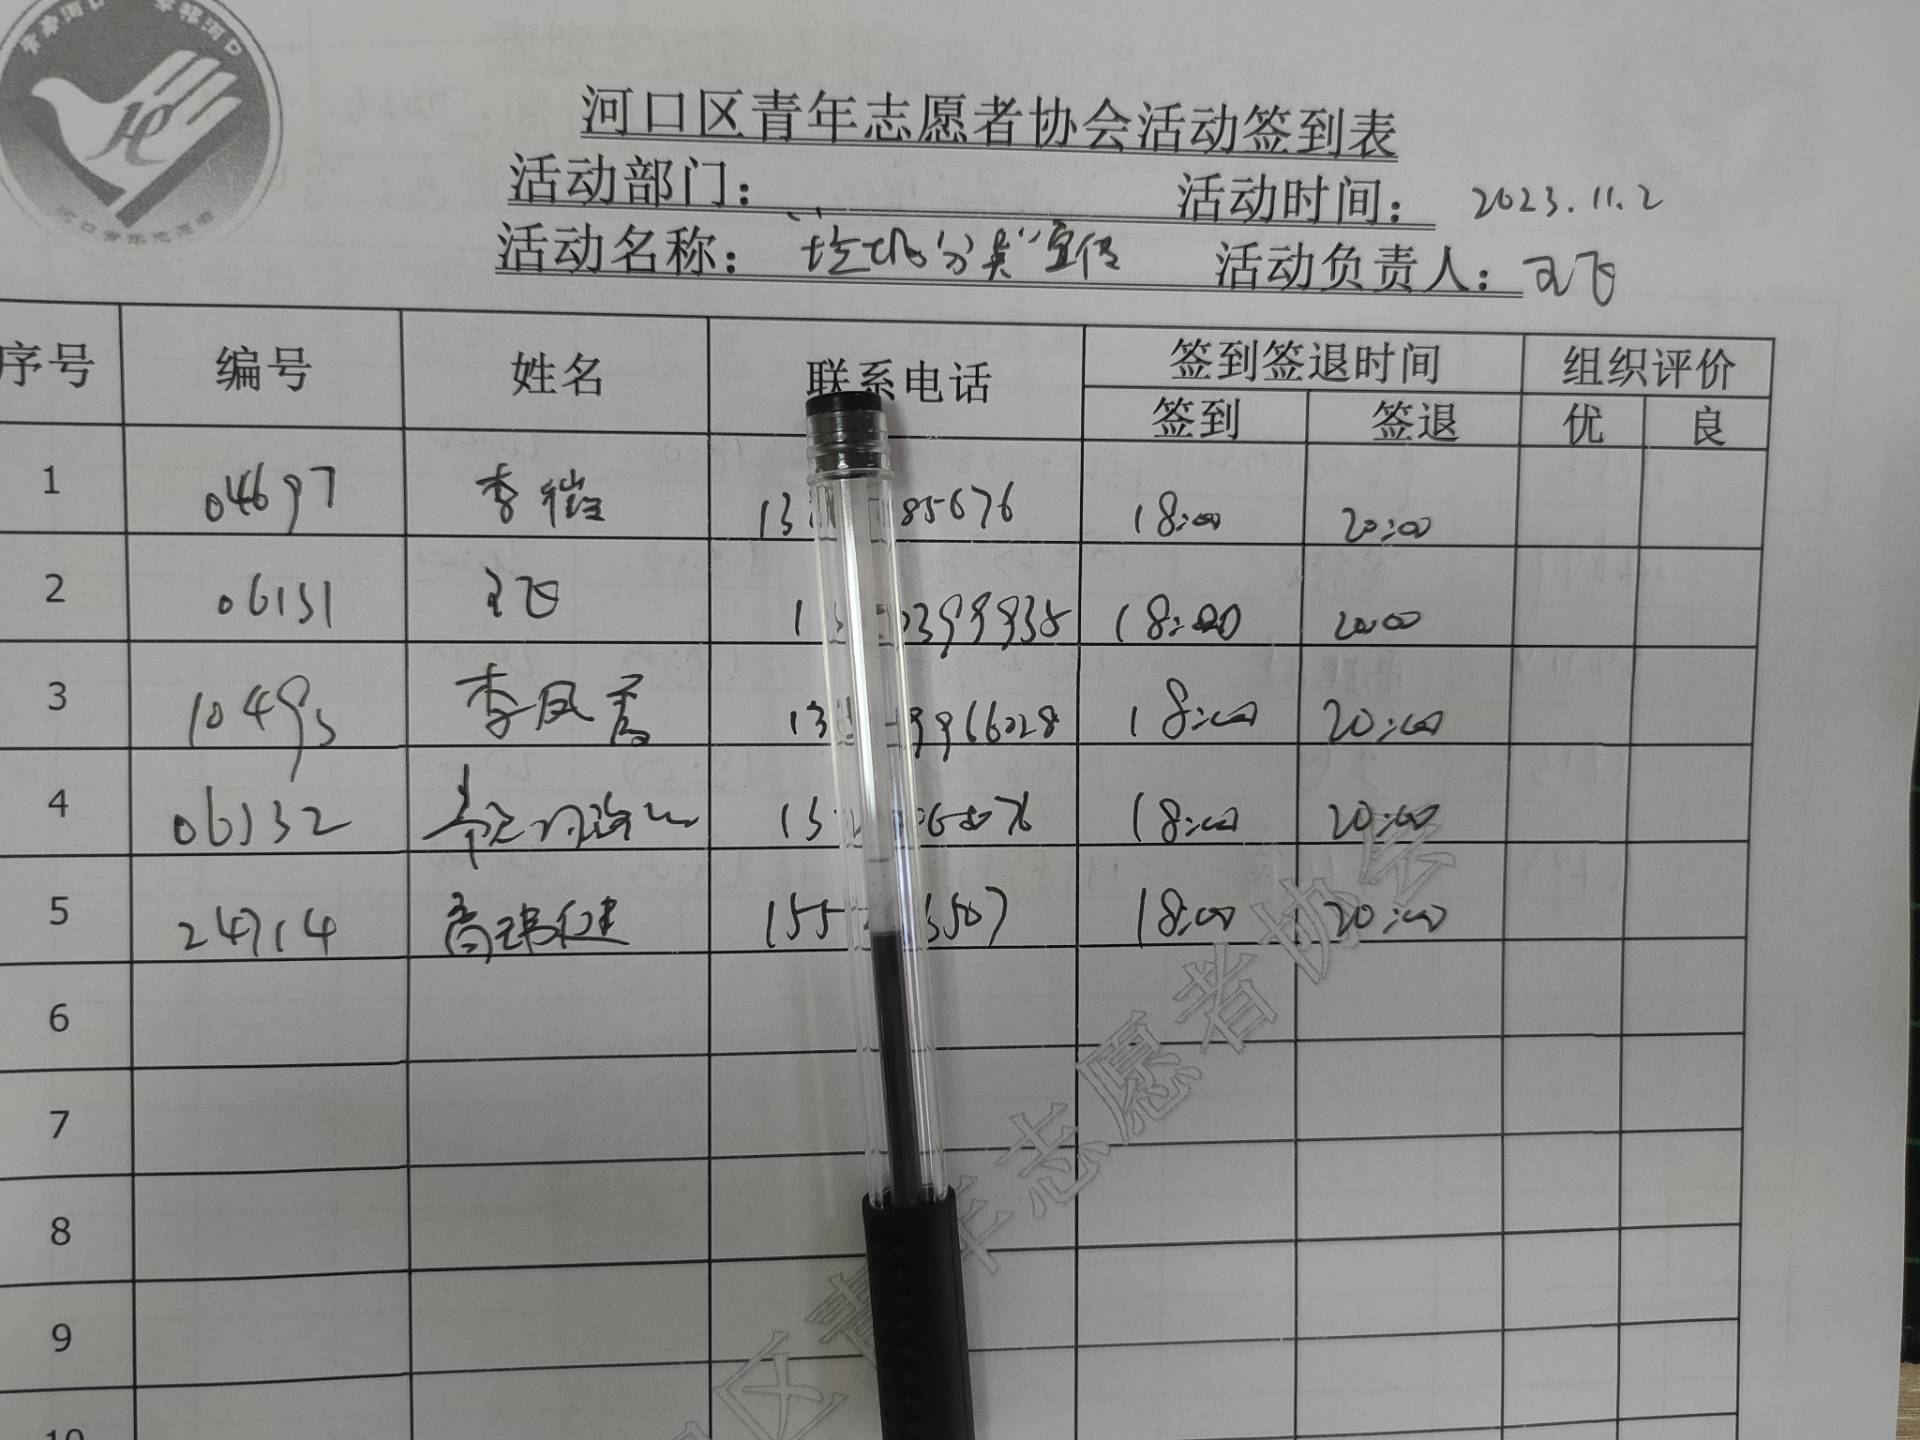 河口区青年志愿者协会活动签到表
活动部门： 活动时间： 2023.11.2
活动名称： "垃圾分类"宣传 活动负责人： 王飞
序号 编号 姓名 联系电话 签到签退时间 组织评价
签到 签退 优 良
1 04697 李 13 85676 18:00 20:00
2 06131 王飞 1 399938 18:00 20:00
3 10493 李凤香 13 9966028 18:00 20:00
4 06132 15 18:00 20:00
5 24714 高 健 155 3507 18:00 20:00
6
7
8
9
10
区青年志愿者协会